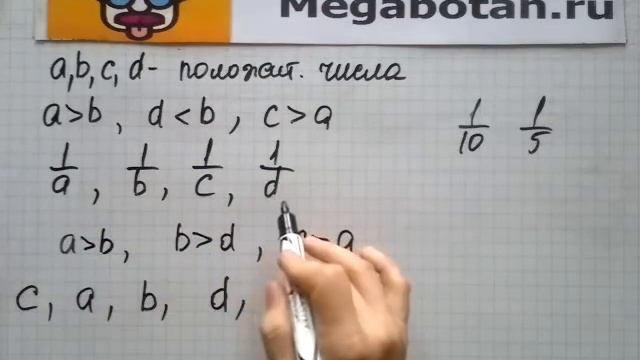 Megabotan.ru
a,b,c,d - положит. числа
a>b, d<b, c>a
1/10 1/5
1/a, 1/b, 1/c, 1/d
a>b, b>d, >a
c, a, b, d,